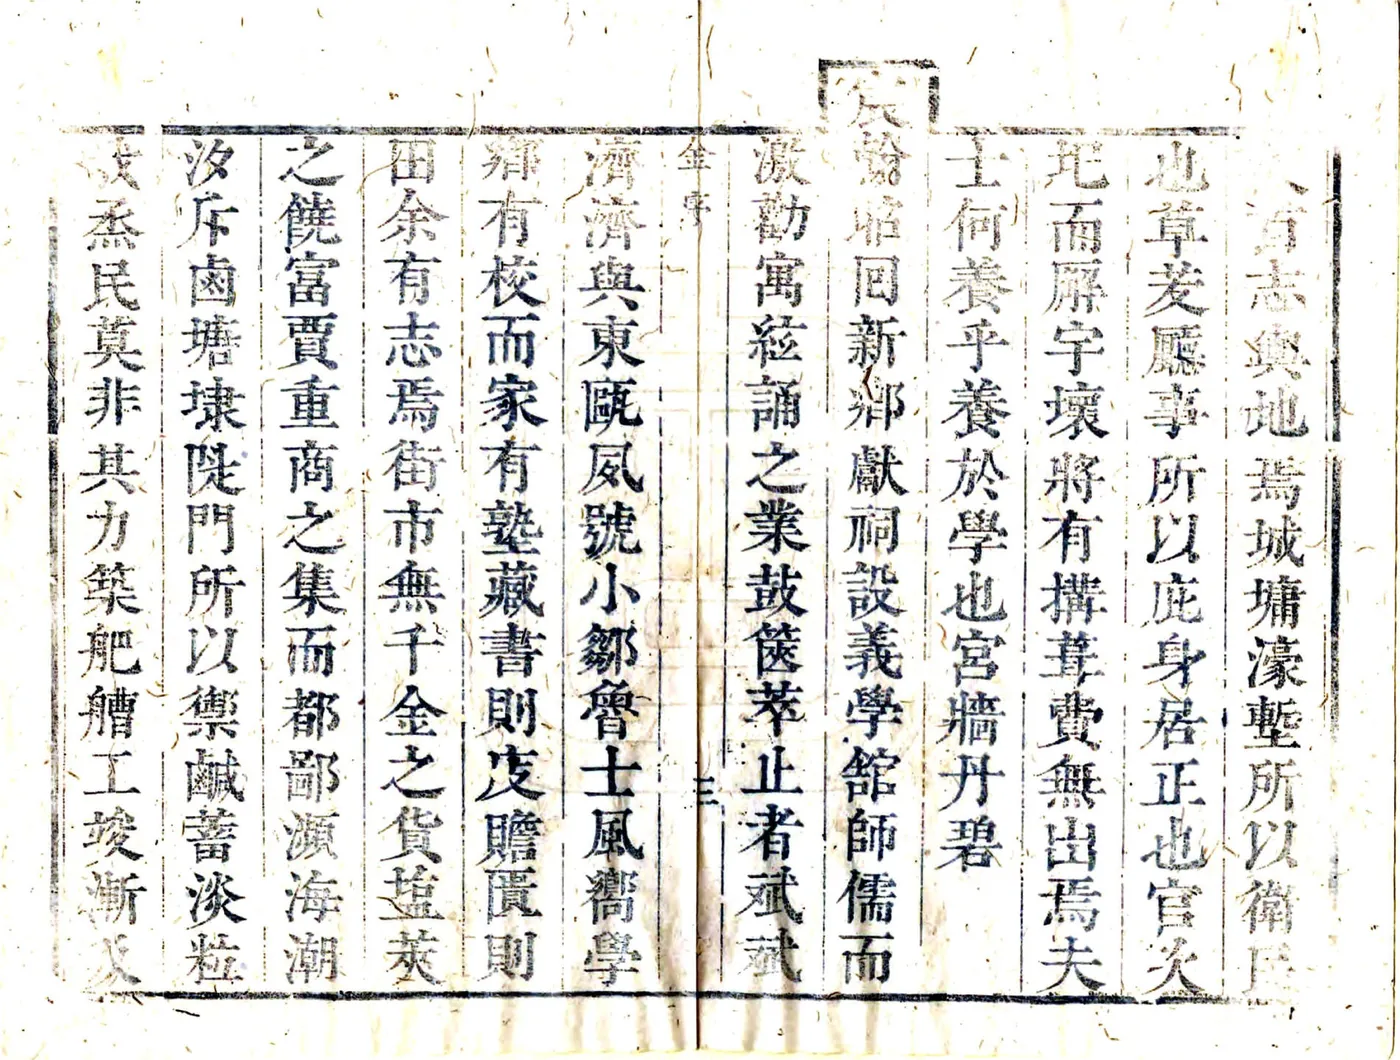 志輿地焉城墉濠塹所以衛民
也草茇廳事所以庇身居正也官久
圯而廨宇壞將有搆葺費無出焉夫
士何養乎養於學也宮牆丹碧
宸翰昭回新鄉獻祠設義學舘師儒而
激勸寓絃誦之業鼓篋萃止者斌斌
金序
三
濟濟與東甌夙號小鄒魯士風嚮學
鄉有校而家有塾藏書則庋贍匱則
田余有志焉街市無千金之貨塩萊
之饒富賈重商之集而都鄙瀕海潮
汐斥鹵塘埭陡門所以禦鹹蓄淡粒
烝民莫非其力築舥艚工竣漸次